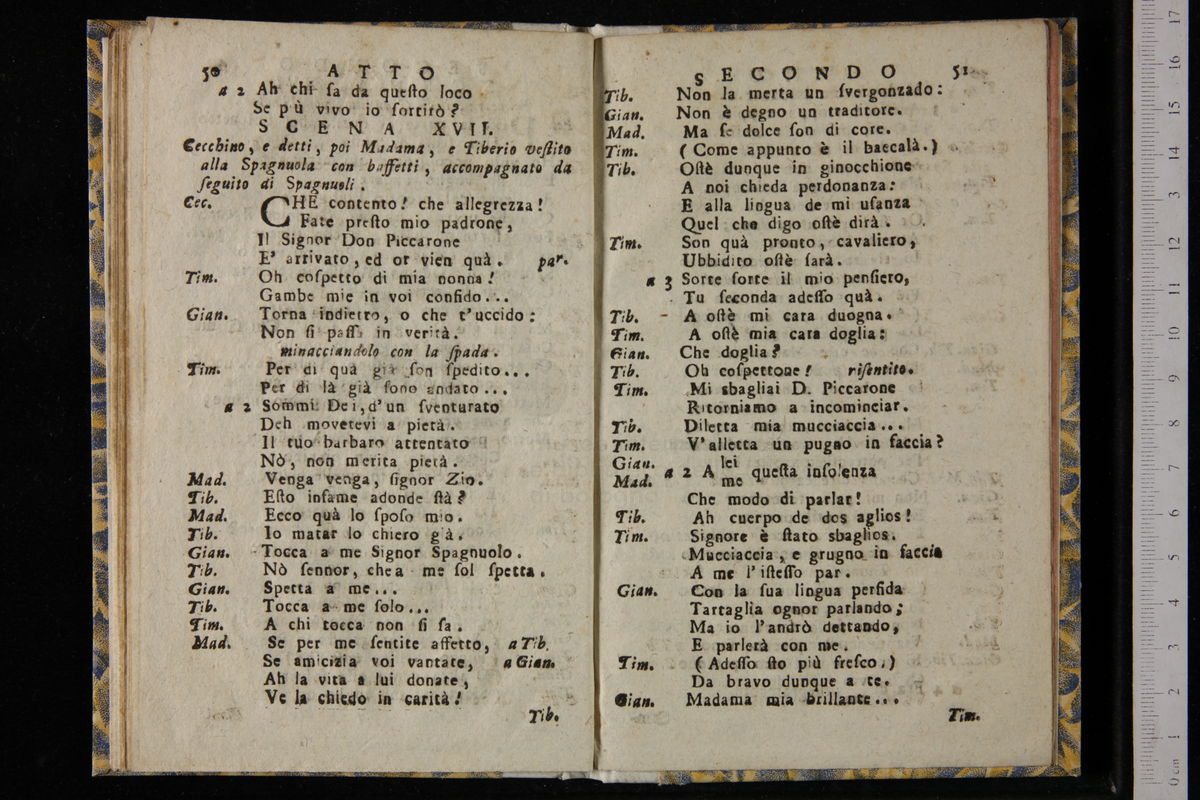 50 ATTO
a 2 Ah chi ſa da queſto loco
Se più vivo io ſortirò?
SCENA XVII.
Cecchino, e detti, poi Madama, e Tiberio veſtito
alla Spagnuola con baffetti, accompagnato da
ſeguito di Spagnuoli.
Cec. CHE contento! che allegrezza!
Fate preſto mio padrone,
Il Signor Don Piccarone
E' arrivato, ed or vien quà. par.
Tim. Oh coſpetto di mia nonna!
Gambe mie in voi confido...
Gian. Torna indietro, o che t'uccido:
Non ſi paſſa in verità.
minacciandolo con la ſpada.
Tim. Per di quà già ſon ſpedito...
Per di là già ſono andato...
a 2 Sommi Dei, d'un ſventurato
Deh movetevi a pietà.
Il tuo barbaro attentato
Nò, non merita pietà.
Mad. Venga venga, ſignor Zio.
Tib. Eſto infame adonde ſtà?
Mad. Ecco quà lo ſpoſo mio.
Tib. Io matar lo chiero già.
Gian. Tocca a me Signor Spagnuolo.
Tib. Nò ſennor, che a me ſol ſpetta.
Gian. Spetta a me...
Tib. Tocca a me ſolo...
Tim. A chi tocca non ſi ſa.
Mad. Se per me ſentite affetto, a Tib.
Se amicizia voi vantate, a Gian.
Ah la vita a lui donate,
Ve la chiedo in carità!
Tib.
SECONDO 51
Tib. Non la merta un ſvergonzado:
Gian. Non è degno un traditore.
Mad. Ma ſe dolce ſon di core.
Tim. (Come appunto è il baccalà.)
Tib. Oſtè dunque in ginocchione
A noi chieda perdonanza:
E alla lingua de mi uſanza
Quel che digo oſtè dirà.
Tim. Son quà pronto, cavaliero,
Ubbidito oſtè ſarà.
a 3 Sorte ſorte il mio penſiero,
Tu ſeconda adeſſo quà.
Tib. - A oſtè mi cara duogna.
Tim. A oſtè mia cara doglia:
Gian. Che doglia?
Tib. Oh coſpettone! riſentito.
Tim. Mi sbagliai D. Piccarone
Ritorniamo a incominciar.
Tib. Diletta mia mucciaccia...
Tim. V'alletta un pugno in faccia?
Gian. lei
a 2 A queſta inſolenza
Mad. me
Che modo di parlar!
Tib. Ah cuerpo de dos aglios!
Tim. Signore è ſtato sbaglios.
Mucciaccia, e grugno in faccia
A me l'iſteſſo par.
Gian. Con la ſua lingua perfida
Tartaglia ognor parlando;
Ma io l'andrò dettando,
E parlerà con me.
Tim. (Adeſſo ſto più freſco.)
Da bravo dunque a te.
Gian. Madama mia brillante...
Tim.
17
16
15
14
13
12
11
10
9
8
7
6
5
4
3
2
1
0 cm